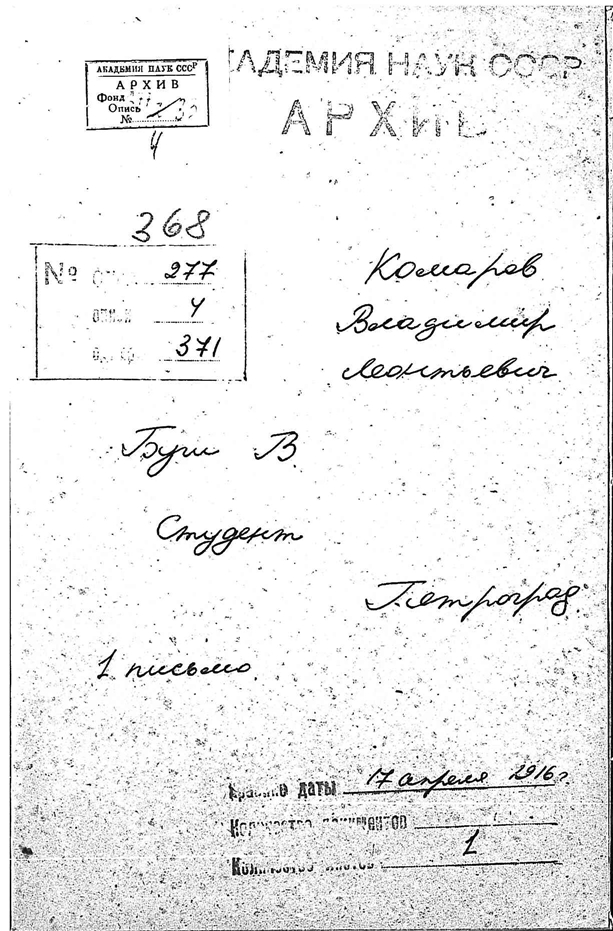 АКАДЕМИЯ НАУК СССР
АРХИВ
Фонд
Опись
№
4
АКАДЕМИЯ НАУК СССР
АРХИВ
368
№ 277
описи 4
371
Комаров
Владимир
Леонтьевич
В.
Студент
Петроград.
1 письмо.
Крайние даты 17 апреля 1916 г
Количество документов
Количество листов 1